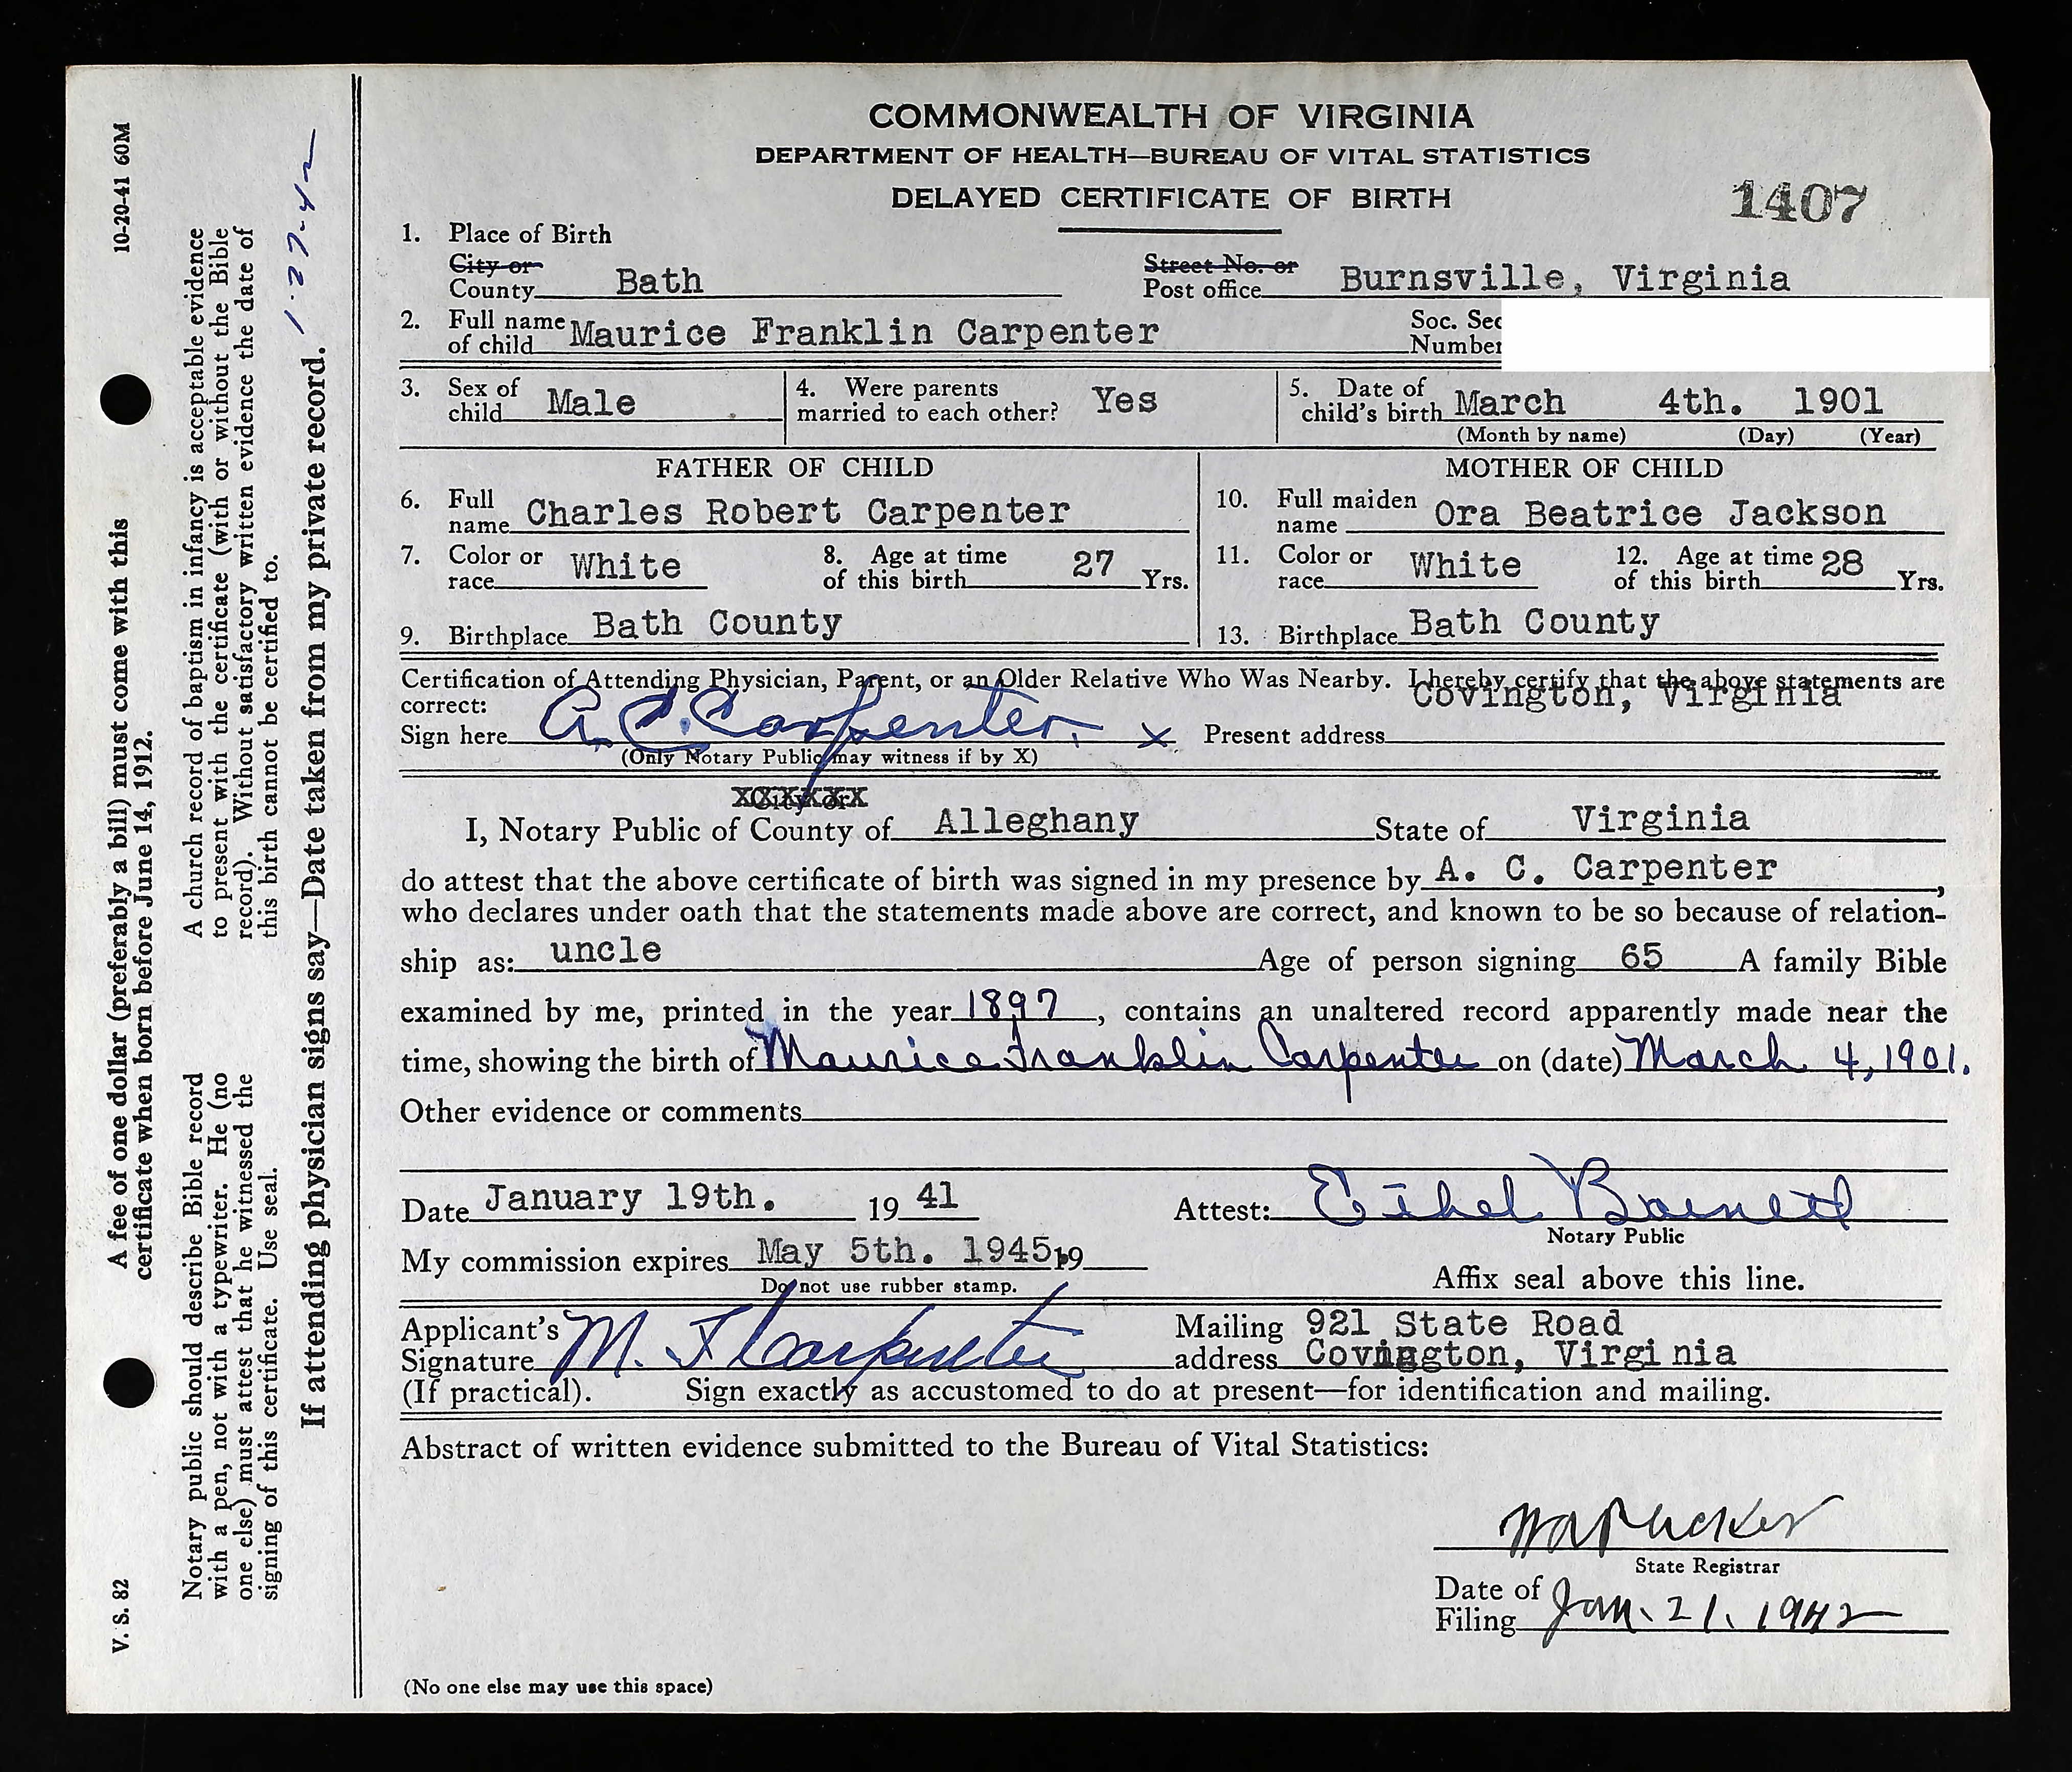 COMMONWEALTH OF VIRGINIA
DEPARTMENT OF HEALTH—BUREAU OF VITAL STATISTICS
DELAYED CERTIFICATE OF BIRTH
1407
1. Place of Birth
City or County Bath Street No. or Post office Burnsville, Virginia
2. Full name of child Maurice Franklin Carpenter Soc. Sec Number
3. Sex of child Male 4. Were parents married to each other? Yes 5. Date of child's birth March 4th. 1901
(Month by name) (Day) (Year)
FATHER OF CHILD MOTHER OF CHILD
6. Full name Charles Robert Carpenter 10. Full maiden name Ora Beatrice Jackson
7. Color or race White 8. Age at time of this birth 27 Yrs. 11. Color or race White 12. Age at time of this birth 28 Yrs.
9. Birthplace Bath County 13. Birthplace Bath County
Certification of Attending Physician, Parent, or an Older Relative Who Was Nearby. I hereby certify that the above statements are
correct:
Sign here A. C. Carpenter. x Present address Covington, Virginia
(Only Notary Public may witness if by X)
City or
I, Notary Public of County of Alleghany State of Virginia
do attest that the above certificate of birth was signed in my presence by A. C. Carpenter,
who declares under oath that the statements made above are correct, and known to be so because of relation-
ship as: uncle Age of person signing 65 A family Bible
examined by me, printed in the year 1897, contains an unaltered record apparently made near the
time, showing the birth of Maurice Franklin Carpenter on (date) March 4, 1901.
Other evidence or comments
Date January 19th. 19 41 Attest: Ethel Barnett
Notary Public
My commission expires May 5th. 1945, 19
Do not use rubber stamp. Affix seal above this line.
Applicant's Signature M. F Carpenter Mailing address 921 State Road
Covington, Virginia
(If practical). Sign exactly as accustomed to do at present—for identification and mailing.
Abstract of written evidence submitted to the Bureau of Vital Statistics:
State Registrar
Date of Filing Jan. 21. 1942
(No one else may use this space)
V. S. 82 10-20-41 60M
A fee of one dollar (preferably a bill) must come with this
certificate when born before June 14, 1912.
Notary public should describe Bible record
with a pen, not with a typewriter. He (no
one else) must attest that he witnessed the
signing of this certificate. Use seal.
A church record of baptism in infancy is acceptable evidence
to present with the certificate (with or without the Bible
record). Without satisfactory written evidence the date of
this birth cannot be certified to.
If attending physician signs say—Date taken from my private record.
1-27-42